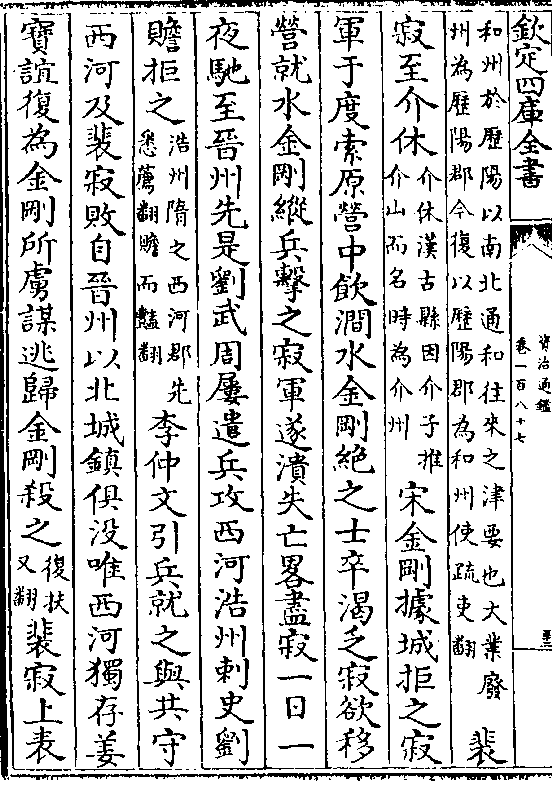 欽定四庫全書
資治通鑑
卷一百八十七
和州於歷陽以南北通和往來之津要也大業廢
州為歷陽郡今復以歷陽郡為和州使疏吏翻
裴
寂至介休
介休漢古縣因介子推
介山而名時為介州
宋金剛據城拒之寂
軍于度索原營中飲澗水金剛絶之士卒渴乏寂欲移
營就水金剛縱兵擊之寂軍遂潰失亡畧盡寂一日一
夜馳至晉州先是劉武周屢遣兵攻西河浩州刺史劉
贍拒之
浩州隋之西河郡先
悉薦翻贍而豔翻
李仲文引兵就之與共守
西河及裴寂敗自晉州以北城鎮俱没唯西河獨存姜
寶誼復為金剛所虜謀逃歸金剛殺之
復扶
又翻
裴寂上表